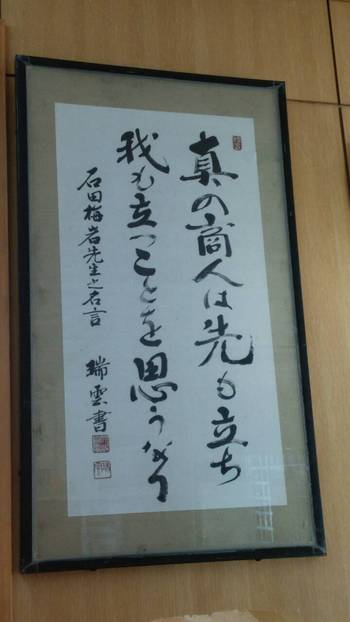 真の商人は先も立ち
我も立つことを思うなり
石田梅岩先生之名言
瑞雲書